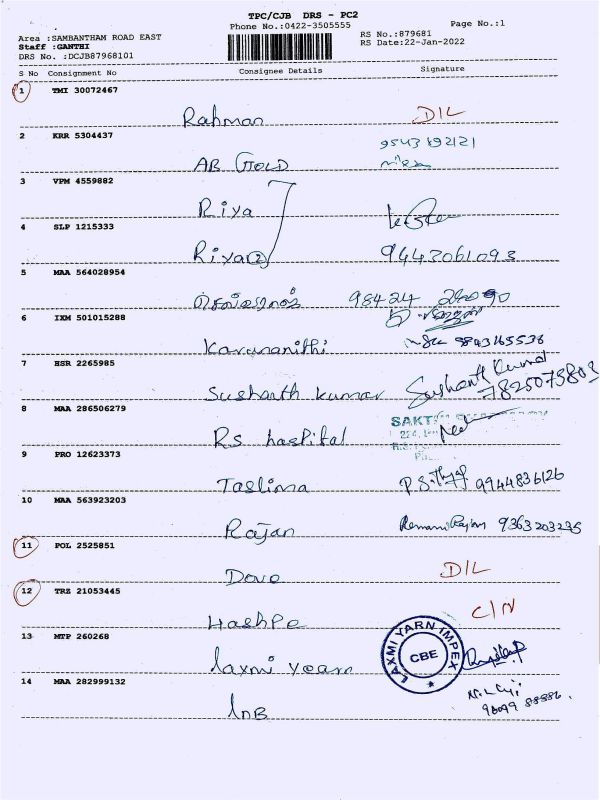 TPC/CJB DRS - PC2
Phone No.:0422-3505555
Page No.:1
Area :SAMBANTHAM ROAD EAST
Staff :GANTHI
DRS No. :DCJB87968101
RS No.:879681
RS Date:22-Jan-2022
S No Consignment No Consignee Details Signature
1 TMI 30072467
Rahman D/L
2 KRR 5304437
9543192121
AB GOLD
3 VPM 4559882
Riya
4 SLP 1215333
Riya (2) 9442061093
5 MAA 564028954
98424
6 IXM 501015288
Karunanithi 9843165536
7 HSR 2265985
Sushanth Kumar
Sushanth kumar 7825075803
8 MAA 286506279
SAKT
Rs hospital
9 PRO 12623373
Taslima 9944836126
10 MAA 563923203
Rajan 9363203235
11 POL 2525851
Dove D/L
12 TRZ 21053445
C/N
13 MTP 260268
LAXMI YARN IMPEX
CBE
laxmi yearn
14 MAA 282999132
InB